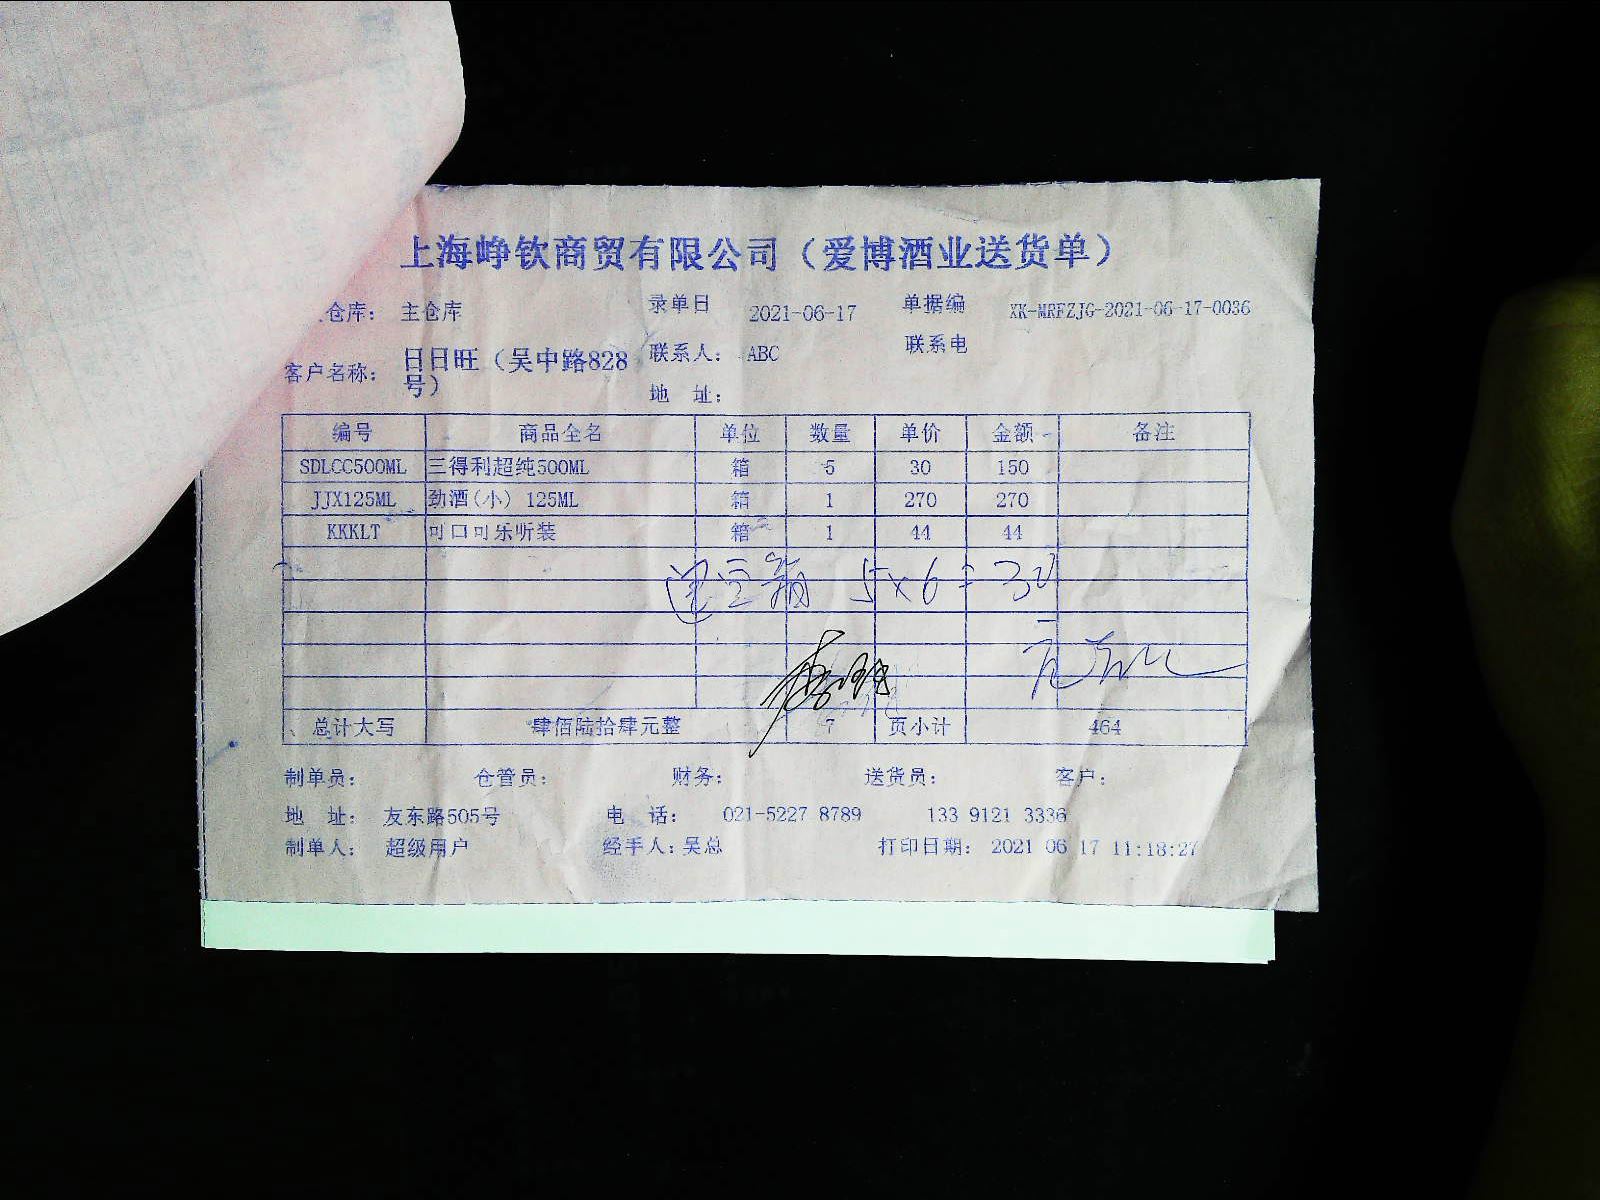 上海峥钦商贸有限公司（爱博酒业送货单）
仓库： 主仓库 录单日 2021-06-17 单据编 XK-MRFZJG-2021-06-17-0036
客户名称： 日日旺（吴中路828号） 联系人： ABC 联系电
地 址：
编号 商品全名 单位 数量 单价 金额 备注
SDLCC500ML 三得利超纯500ML 箱 5 30 150
JJX125ML 劲酒(小) 125ML 箱 1 270 270
KKKLT 可口可乐听装 箱 1 44 44
空箱 5×6=30
总计大写 肆佰陆拾肆元整 7 页小计 464
制单员： 仓管员： 财务： 送货员： 客户：
地 址： 友东路505号 电 话： 021-5227 8789 133 9121 3336
制单人： 超级用户 经手人：吴总 打印日期： 2021 06 17 11:18:27